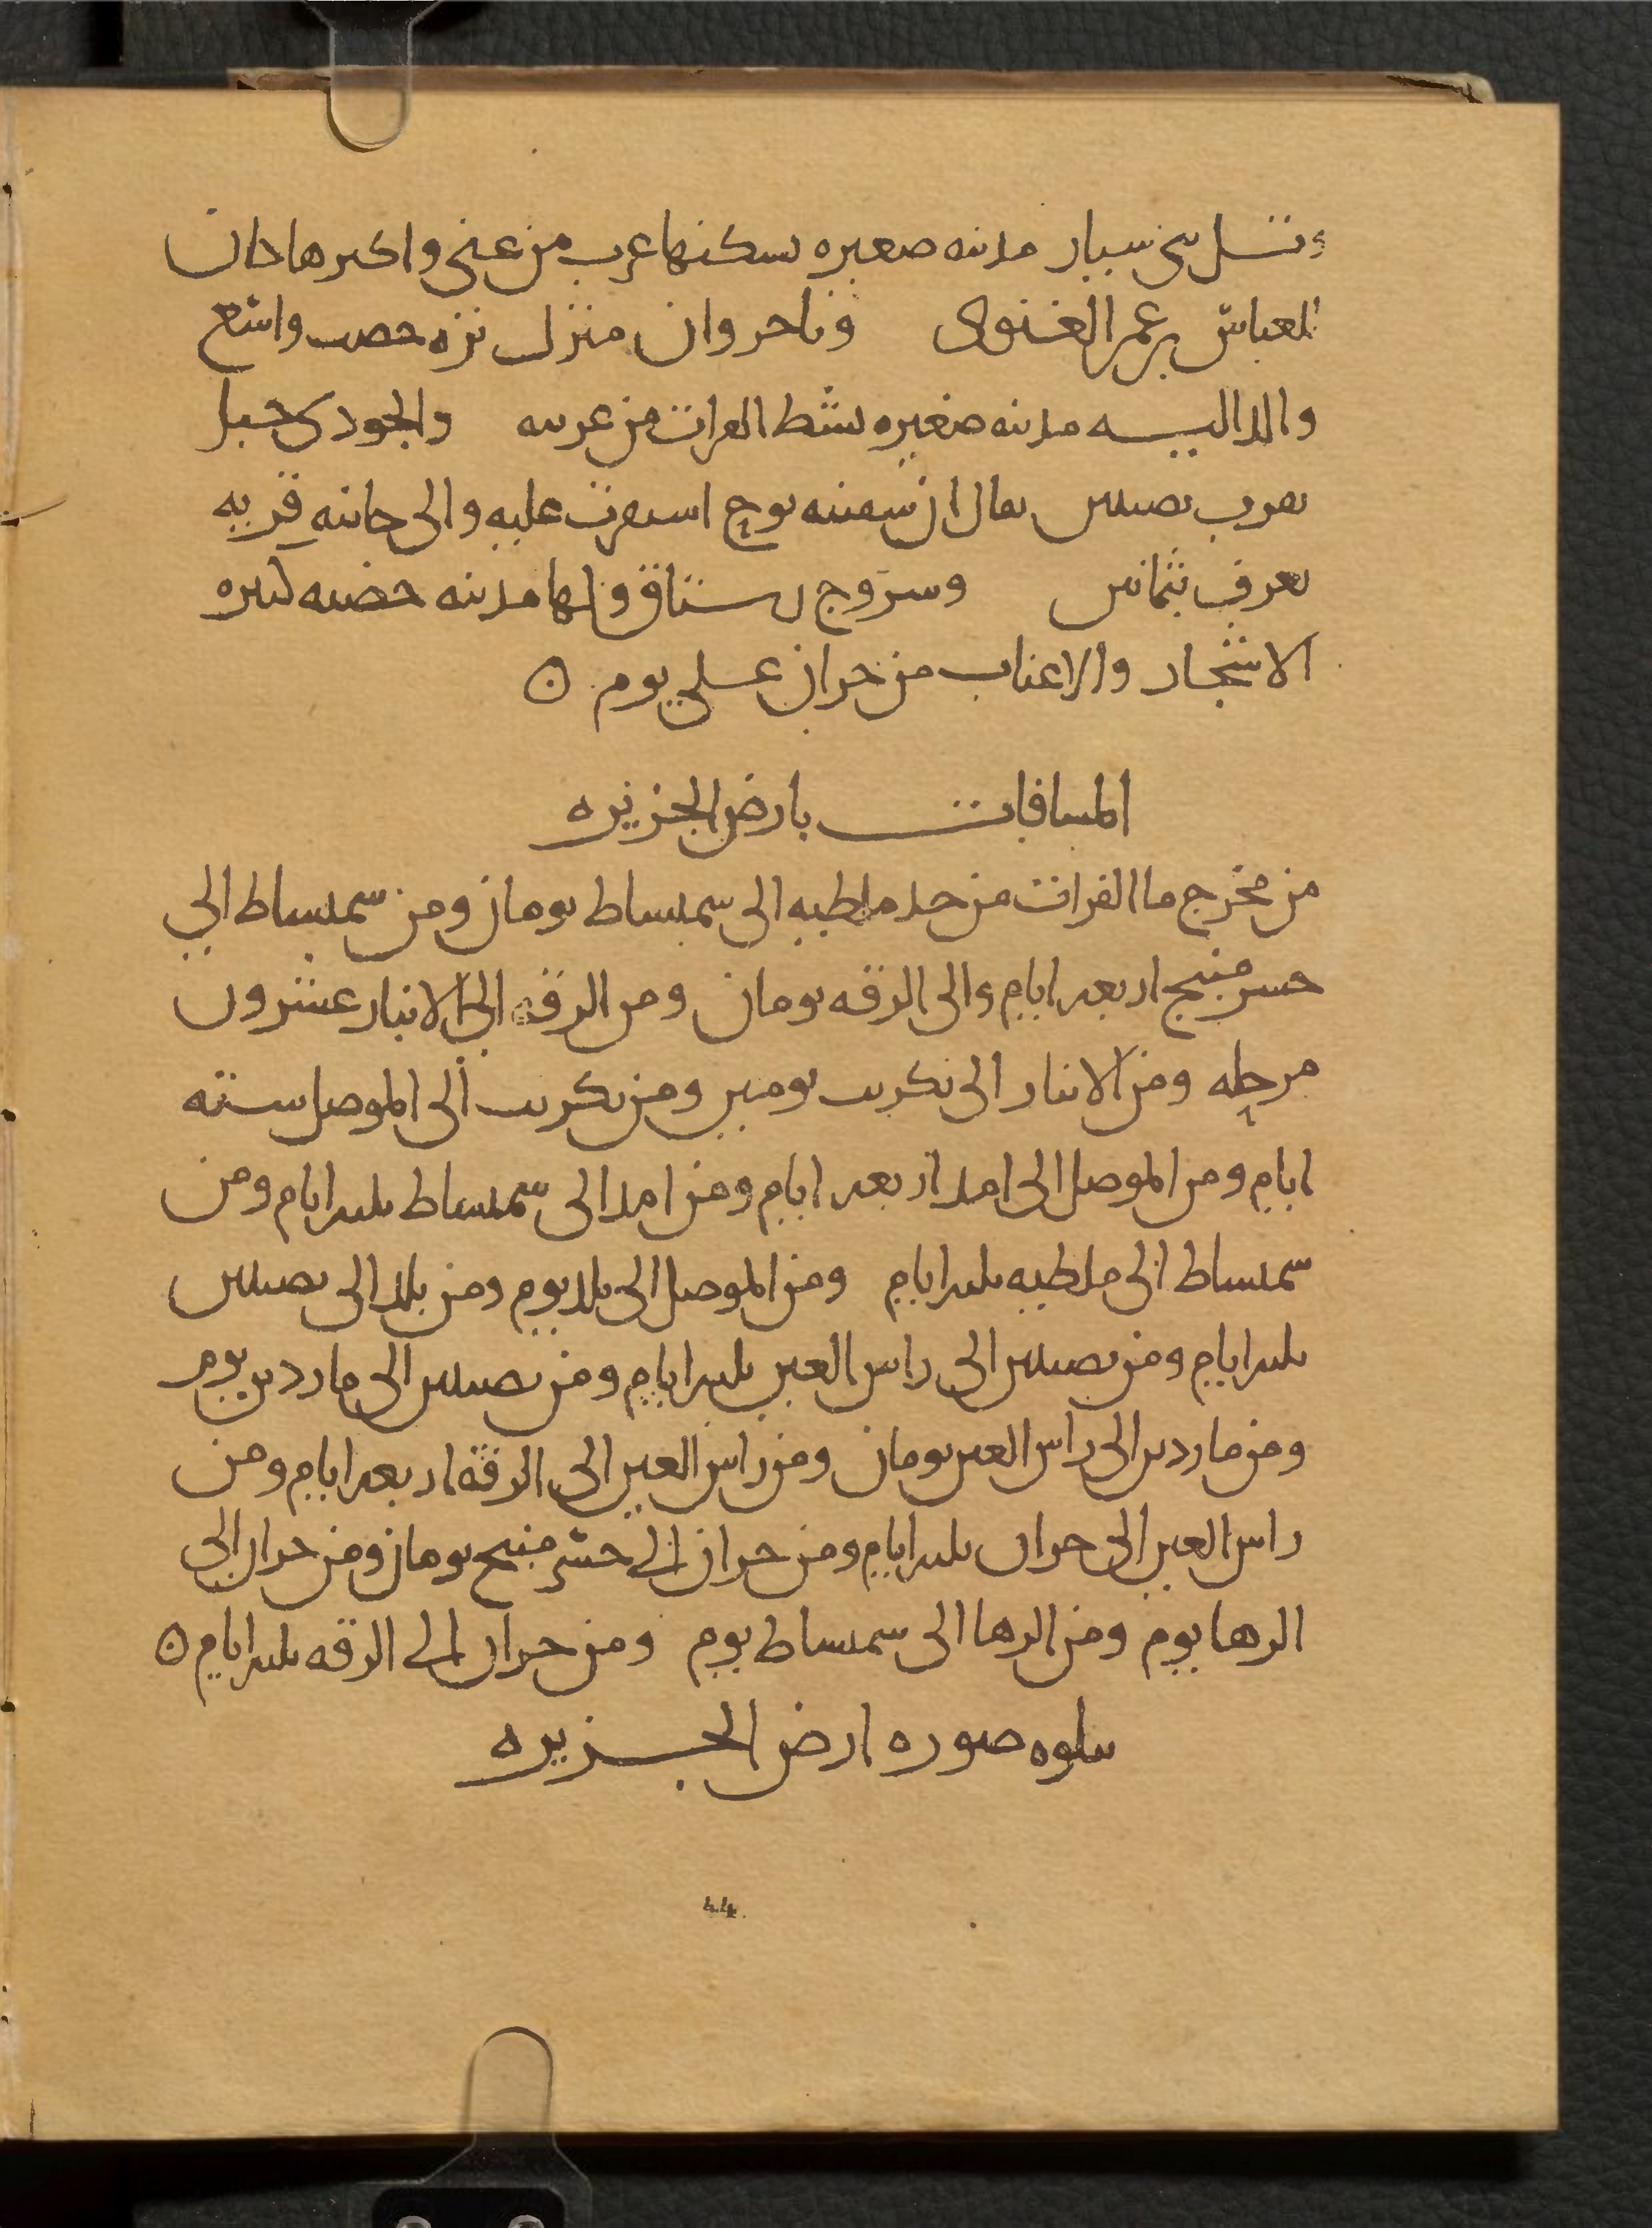 وتل بني سيار مدينه صغيره يسكنها عرب من غني واكبرها كان
للعباس بن عمر الغنوي وباجروان منزل نزه خصب واسع
والداليـه مدينه صغيره بشط الفرات من غربيه والجودي جبل
بقرب نصيبين يقال ان سفينه نوح استقرت عليه والى جانبه قريه
تعرف بثمانين وسروج رستاق ولها مدينه خصبه كثيره
الاشجار والاعناب من حران على يوم ⊙
المسافات بارض الجزيره
من مخرج ما الفرات من حد ملطيه الى سميساط يومان ومن سميساط الى
جسر منبج اربعه ايام والى الرقه يومان ومن الرقه الى الانبار عشرون
مرحله ومن الانبار الى تكريت يومين ومن تكريت الى الموصل سته
ايام ومن الموصل الى امد اربعه ايام ومن امد الى سميساط ثلثه ايام ومن
سميساط الى ملطيه ثلثه ايام ومن الموصل الى بلد يوم ومن بلد الى نصيبين
ثلثه ايام ومن نصيبين الى راس العين ثلثه ايام ومن نصيبين الى ماردين يوم
ومن ماردين الى راس العين يومان ومن راس العين الى الرقه اربعه ايام ومن
راس العين الى حران ثلثه ايام ومن حران الى جسر منبج يومان ومن حران الى
الرها يوم ومن الرها الى سميساط يوم ومن حران الى الرقه ثلثه ايام ⊙
يتلوه صوره ارض الجزيره
44